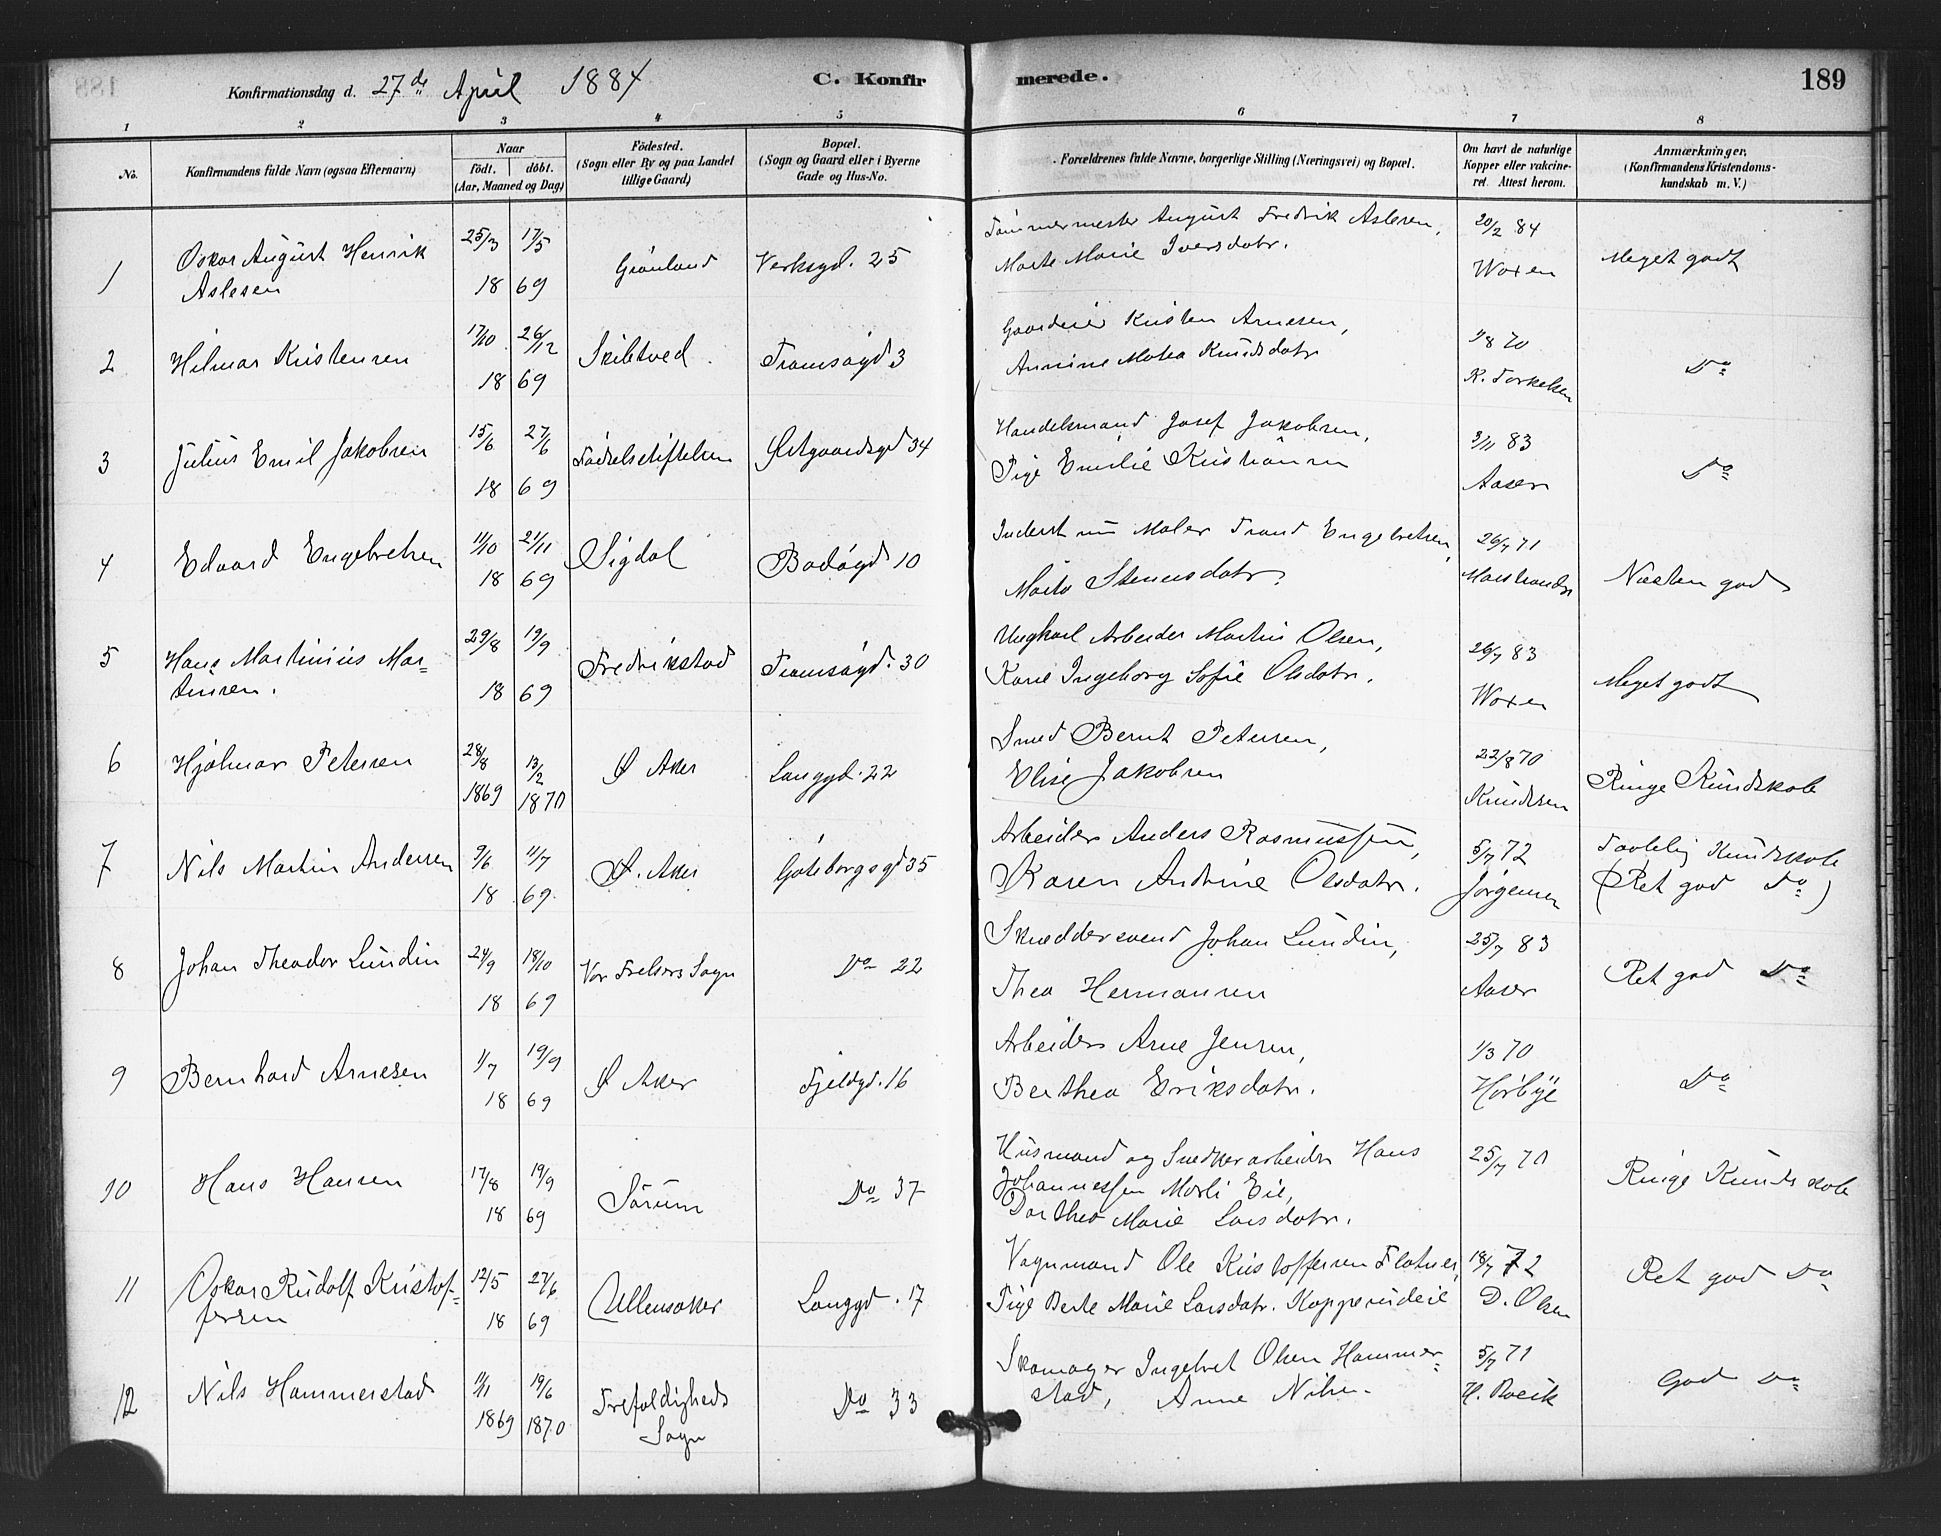 Konfirmationsdag d. 27de April 1884 C. Konfirmerede. 189
1 2 3 4 5 6 7 8
No. Konfirmandens fulde Navn (ogsaa Efternavn) Naar födt. döbt. (Aar, Maaned og Dag) Födested. (Sogn eller By og paa Landet tillige Gaard) Bopæl. (Sogn og Gaard eller i Byerne Gade og Hus-No. Forældrenes fulde Navne, borgerlige Stilling (Næringsvei) og Bopæl. Om havt de naturlige Kopper eller vakcineret. Attest herom. Anmærkninger, (Konfirmandens Kristendomskundskab m. V.)
1 Oskar August Henrik Aslesen 25/3 17/5 18 69 Grønland Verksgd. 25 Tømmermester August Fredrik Aslesen, Marte Marie Iversdatr. 20/2 84 Woxen Meget godt
2 Hilmar Kristensen 17/10 26/12 18 69 Skibtved Tromsøgd 3 Gaardeier Kristen Arnesen, Annine Mathea Knudsdatr 1/8 70 K. Torkelsen Do
3 Julius Emil Jakobsen 15/6 27/6 18 69 Fødselsstiftelsen Østgaardsgd 34 Handelsmand Josef Jakobsen, Pige Emilie Kristiansen 3/11 83 Aasen Do
4 Edvard Engebretsen 11/10 21/11 18 69 Sigdal Bodøgd 10 Inderst nu Maler Trond Engebretsen, Marta Stenersdatr. 26/7 71 Næsten god
5 Hans Martinius Martinsen. 29/8 19/9 18 69 Fredrikstad Tromsøgd. 30 Ungkarl Arbeider Martin Olsen, Karen Ingeborg Sofie Olsdatr. 26/7 83 Woxen Meget godt
6 Hjalmar Petersen 28/8 1869 13/2 1870 Ø Aker Langgd. 22 Smed Bernt Petersen, Elise Jakobsen 22/8 70 Knudsen Ringe Kundskab
7 Nils Martin Andersen 9/6 11/7 18 69 Ø. Aker Gøteborgsgd 35 Arbeider Anders Rasmussen, Karen Andrine Olsdatr. 5/7 72 Jørgensen Taalelig Kundskab (Ret god Do)
8 Johan Theodor Lundin 24/9 18/10 18 69 Vor Frelsers Sogn Do 22 Skræddersvend Johan Lundin, Thea Hermansen 25/7 83 Aaser Ret god Do
9 Bernhard Arnesen 1/7 19/9 18 69 Ø Aker Fjeldgd. 16 Arbeider Arne Jensen, Berthea Eriksdatr. 1/3 70 Hørbÿe Do
10 Hans Hansen 17/8 19/9 18 69 Sørum Do 37 Husmand og Snedkerarbeider Hans Johannessen Morli Eie, Dorthea Marie Larsdatr. 25/7 70 Ringe Kundskab
11 Oskar Rudolf Kristoffersen 12/5 27/6 18 69 Ullensaker Langgd. 17 Vognmand Ole Kristoffersen Flatner, Pige Berte Marie Larsdatr. Kopperudeie 18/7 72 D. Olsen Ret god Do
12 Nils Hammerstad 11/11 1869 19/6 1870 Trefoldigheds Sogn Do 33 Skomager Ingebret Olsen Hammerstad, Anne Nilsen. 5/7 71 God Do